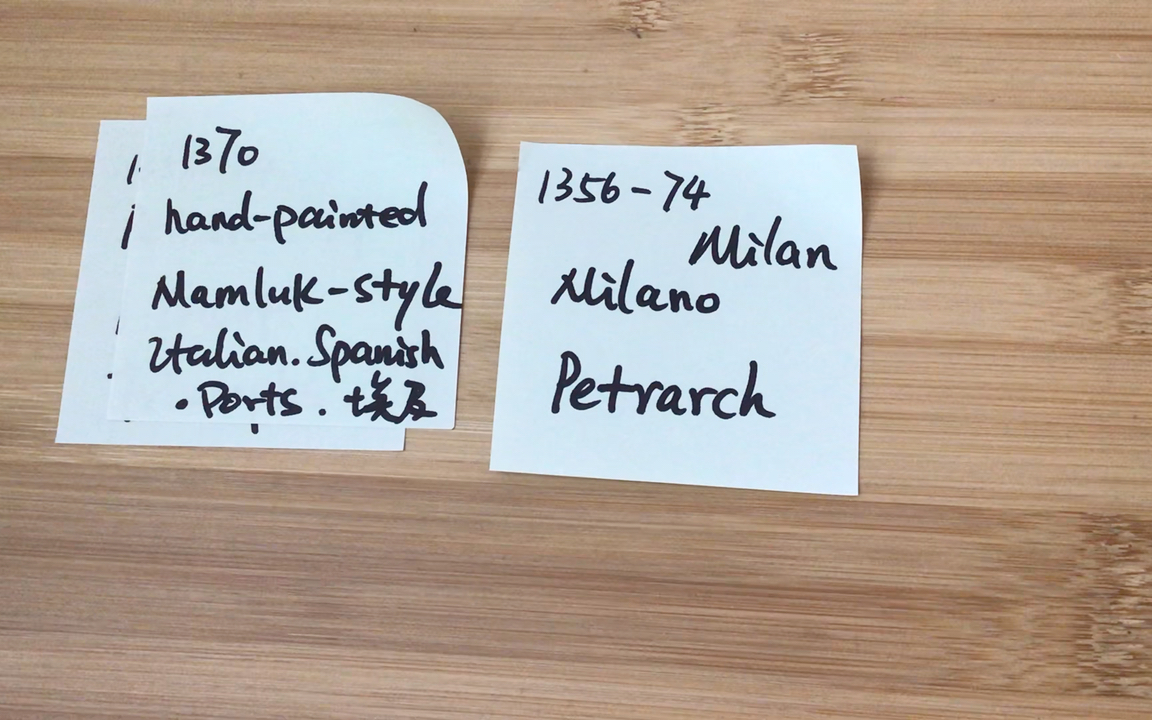 1370
hand-painted
Mamluk-style
Italian. Spanish
. Ports . 埃及
1356-74
Milan
Milano
Petrarch